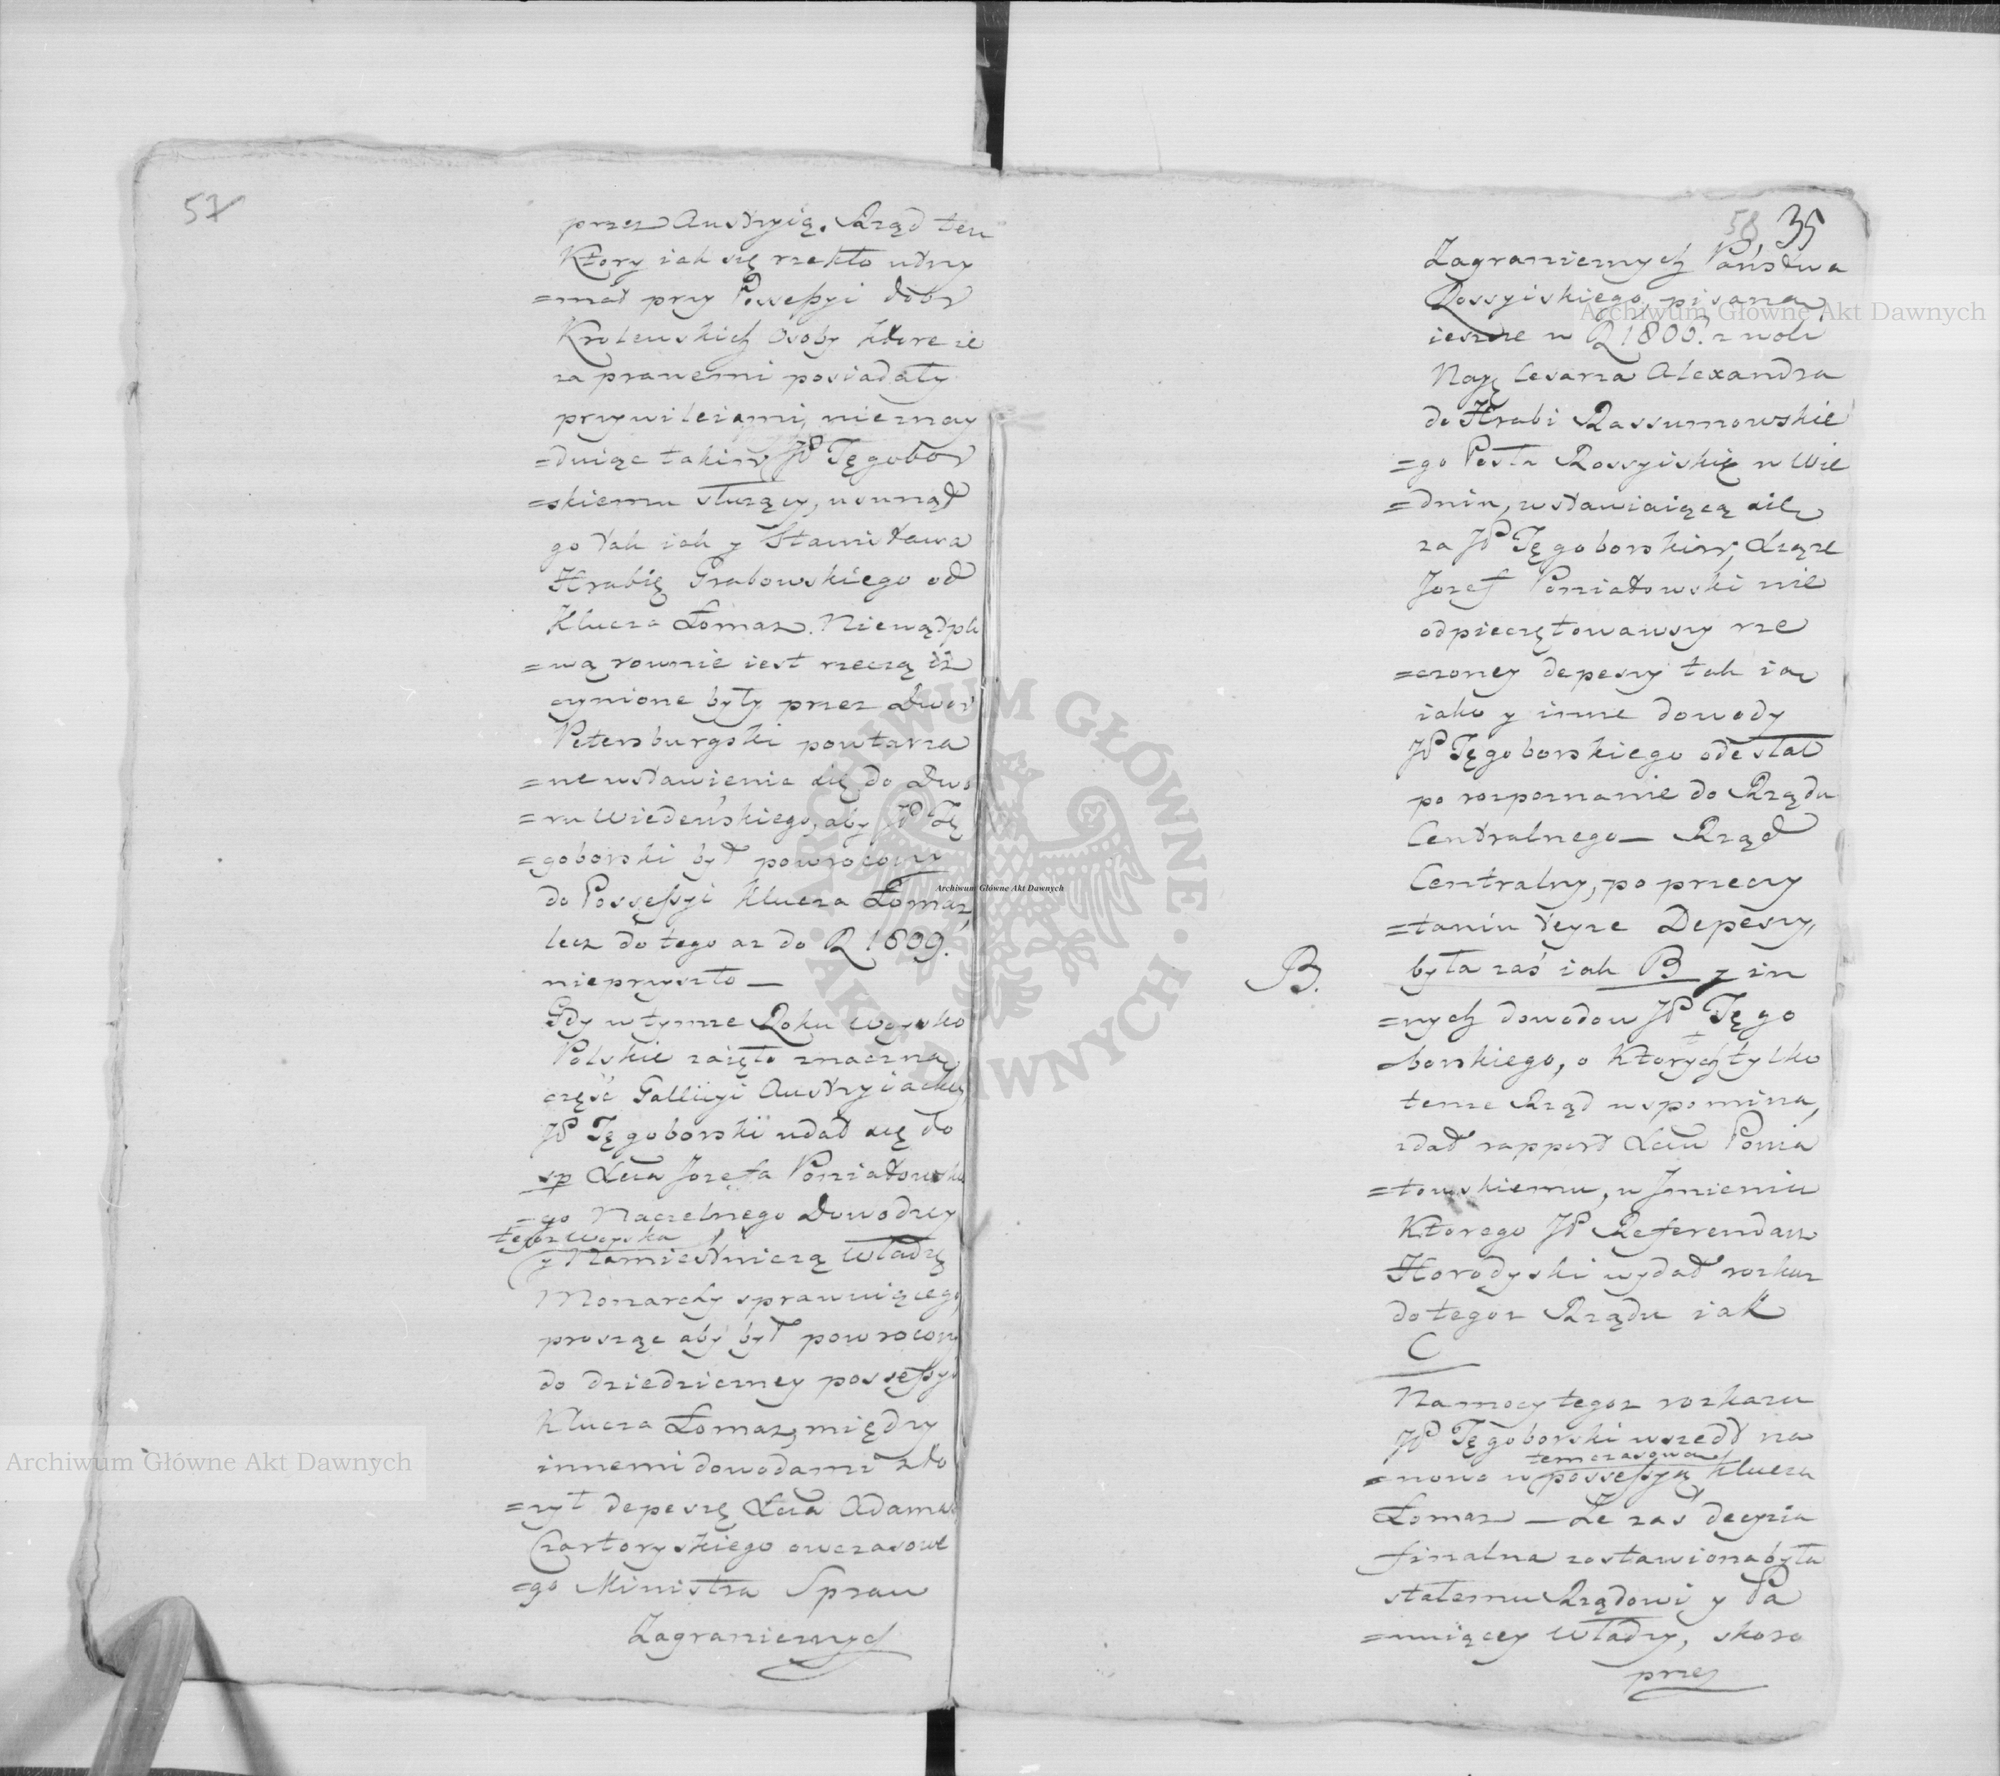 57
przez Austryią. Rząd ten
Ktory iak się rzekło utrzy
=mał przy Possessyi dobr
Krolewskich Osoby ktore ie
za prawemi posiadały
przywileiami, nieznay
=duiąc takim JP Tęgobor
=skiemu służący, usunął
go tak iak y Stanisława
Hrabię Grabowskiego od
Klucza Łomaz. Niewątpli
=wą rownie iest rzeczą iż
czynione były przez Dwor
Petersburgski powtarza
=ne wstawienie się do Dwo
=ru Wiedeńskiego, aby JP Tę
=goborski był powrocony
do Possessyi Klucza Łomaz,
lecz do tego az do R 1809.
nieprzyszło —
Gdy w tymze Roku Woysko
Polskie zaięło znaczną
część Gallicyi Austryiackiey
JP Tęgoborski udał się do
sp Xcia Jozefa Poniatowskie
=go Naczelnego Dowodzcy
tegoz Woyska
y Namiestniczą Władzę
Monarchy sprawuiącego,
prosząc aby był powrocony
do dziedziczney possessyi
Klucza Łomaz, między
innemi dowodami zło
=zył depeszę Xcia Adama
Czartoryskiego owczasowe
=go Ministra Spraw
Zagranicznych
58 35
Zagranicznych Państwa
Rossyiskiego, pisaną
ieszcze w R 1806. z woli
Nayę Cesarza Alexandra
do Hrabi Rassumowskie
=go Posła Rossyiskię w Wie
=dniu, wstawiaiącą się
za JP Tęgoborskim, Xiąże
Jozef Poniatowski nie
odpieczętowawszy rze
=czoney depeszy tak ią
iako y inne dowody
JP Tęgoborskiego odesłał
po rozpoznanie do Rządu
Centralnego — Rząd
Centralny, po przeczy
=taniu teyze Depeszy,
B.
była zaś iak B y in
=nych dowodow JP Tęgo
=borskiego, o ktorych tylko
tenze Rząd wspomina,
zdał rapport Xciu Ponia
=towskiemu, w Jmieniu
Ktorego JP Referendarz
Horodyski wydał rozkaz
do tegoz Rządu iak
C
Na mocy tegoz rozkazu
JP Tęgoborski wszedł na
temczasową
=nowo w possessyą Klucza
Łomaz — Ze zaś decyzia
finalna zostawiona była
stałemu Rządowi y Pa
=nuiącey Władzy, skoro
przez
Archiwum Główne Akt Dawnych
Archiwum Główne Akt Dawnych
Archiwum Główne Akt Dawnych
ARCHIWUM GŁÓWNE · AKT DAWNYCH ·